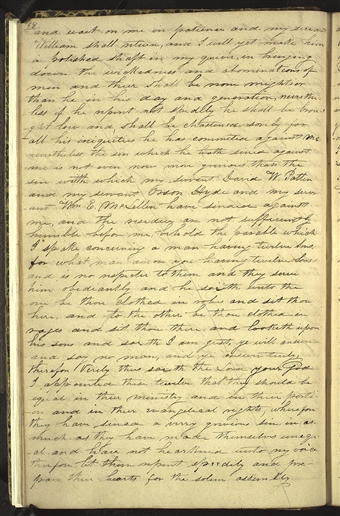 and wait on me in patience and my servant
William shall return, and I will yet make him
a polished shaft in my quiver, in bringing
down the wickedness and abominations of
men and their shall be none mightier
than he in his day and generation, neverthe
less if he repent not speedily he shall be brou
ght low and shall be chastened sorely for
all his iniquities he has committed against me
nevertheless the sin which he hath sined against
me is not even now more grievous than the
sin with which my servant David W. Patten
and my servant Orson Hyde and my serv
ant Wm E. McLellen have sinned against
me, and the residue are not sufficiently
humble before me, behold the parable which
I spake concerning a man having twelve Sons,
for what man among you having twelve Sons
and is no respecter to them and they serve
him obediantly and he saith unto the
one be thou clothed in robes and sit thou
here, and to the other be thou clothed in
rages and sit thou there, and looketh upon
his sons and saith I am just, ye will answer
and say no man, and ye answer truly,
therefore Verely thus saith the Lord your God
I appointed these twelve that they should be
equal in their ministry and in their porti
on and in their evangelical rights, wherefore
they have sined a very grievous sin in as
much as they have made themselves unequ
al and have not hearkned unto my voice
therfor let them repent speedily and pre-
pare their hearts for the solem assembly